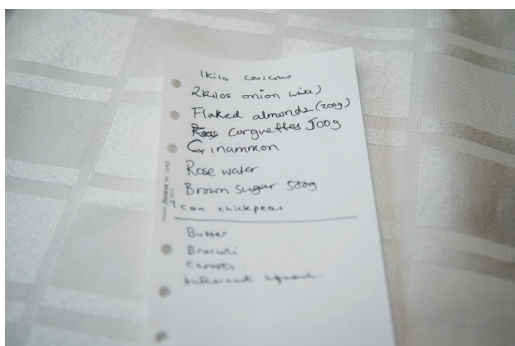 1kilo couscous
2kilos onion
Flaked almonds (200g)
Corguettes 500g
Cinammon
Rose water
Brown Sugar 500g
1 can chickpeas
Butter
Carrots.
butternut squash.